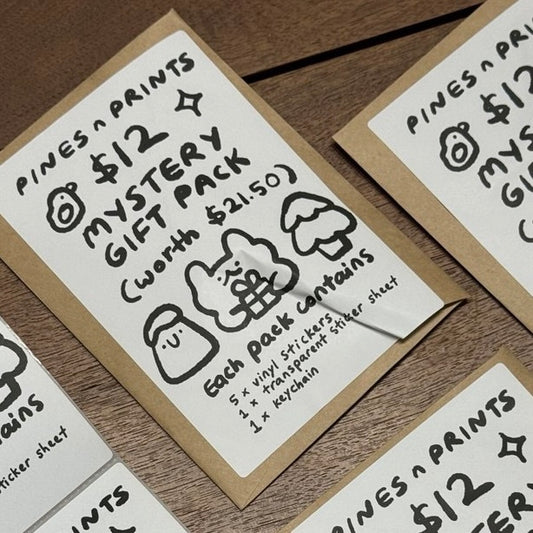 PINES n PRINTS
$12
MYSTERY
GIFT PACK
(worth $21.50)
Each pack contains
5 x vinyl stickers
1 x transparent sticker sheet
1 x keychain
PINES n PRI
$12
MYS
GI
(w
ains
sticker sheet
INTS
PINES n PRINTS
$12
TERY